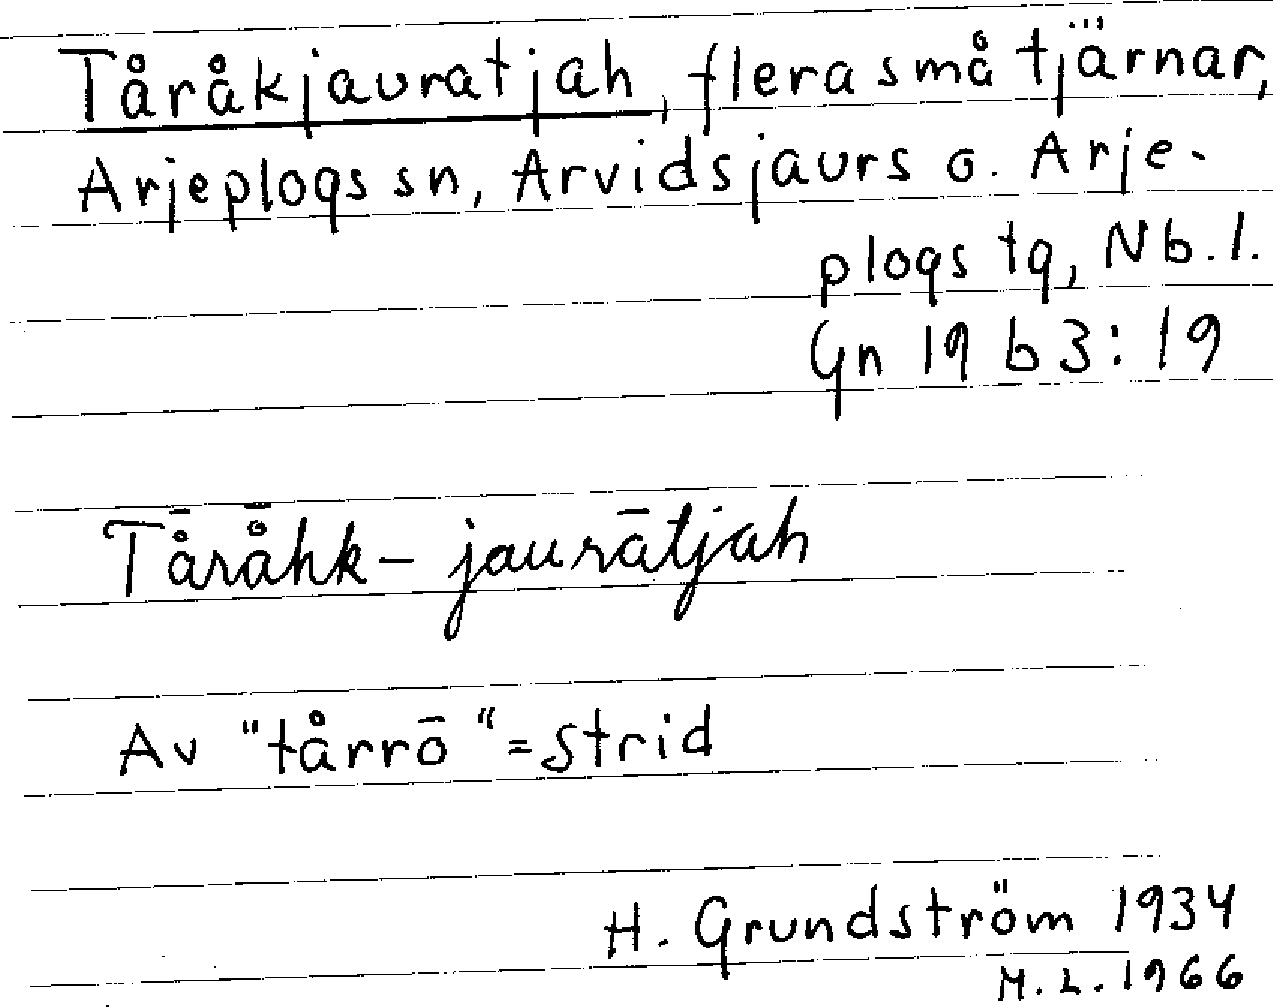 Tåråkjauratjah, flera små tjärnar,
Arjeplogs sn, Arvidsjaurs o. Arje-
plogs tg, Nb. l.
Gn 19 b 3: 19
Tå̄rå̄hk-jaurātjah
Av "tårrō" = strid
H. Grundström 1934
M. L. 1966